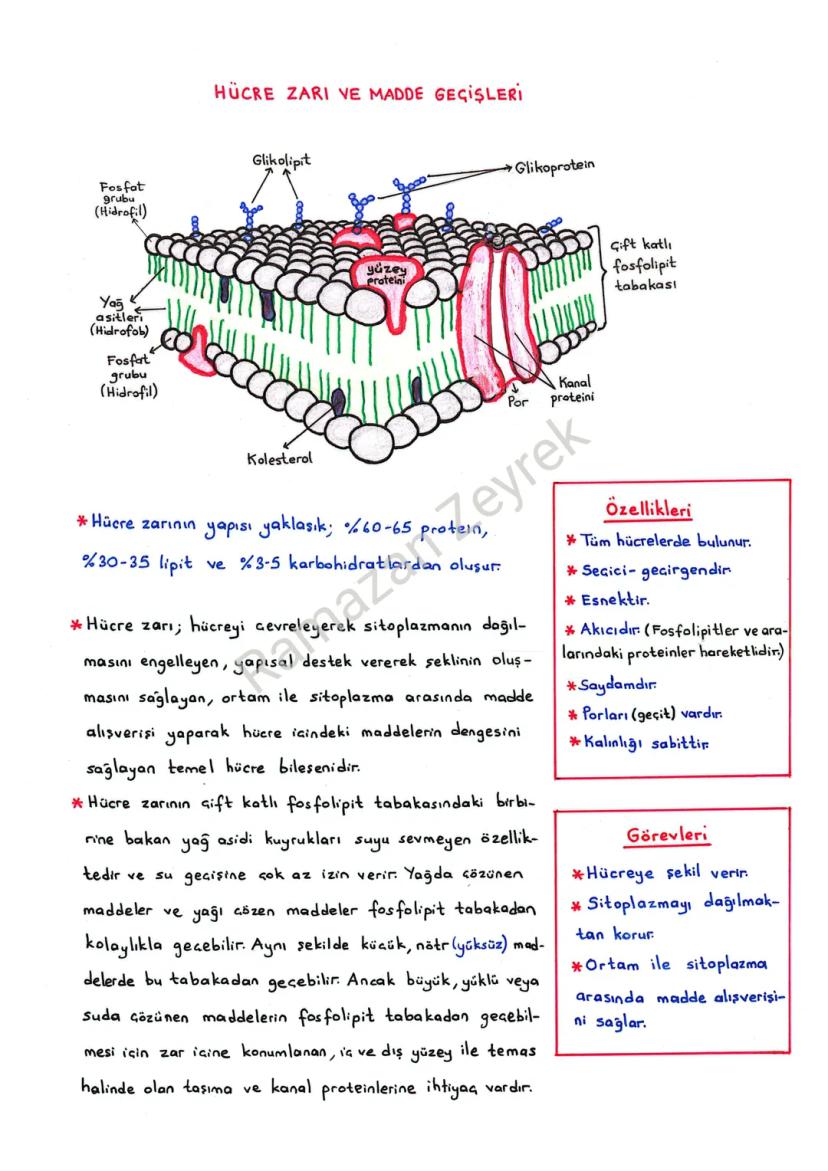 HÜCRE ZARI VE MADDE GEÇİŞLERİ
Glikolipit
Glikoprotein
Fosfat
grubu
(Hidrofil)
Çift katlı
fosfolipit
tabakası
yüzey
proteini
Yağ
asitleri
(Hidrofob)
Fosfat
grubu
(Hidrofil)
Kanal
proteini
Por
Kolesterol
Ramazan Zeyrek
* Hücre zarının yapısı yaklaşık; %60-65 protein,
%30-35 lipit ve %3-5 karbohidratlardan oluşur.
* Hücre zarı; hücreyi çevreleyerek sitoplazmanın dağıl-
masını engelleyen, yapısal destek vererek şeklinin oluş-
masını sağlayan, ortam ile sitoplazma arasında madde
alışverişi yaparak hücre içindeki maddelerin dengesini
sağlayan temel hücre bileşenidir.
* Hücre zarının çift katlı fosfolipit tabakasındaki birbi-
rine bakan yağ asidi kuyrukları suyu sevmeyen özellik-
tedir ve su geçişine çok az izin verir. Yağda çözünen
maddeler ve yağı çözen maddeler fosfolipit tabakadan
kolaylıkla geçebilir. Aynı şekilde küçük, nötr (yüksüz) mad-
delerde bu tabakadan geçebilir. Ancak büyük, yüklü veya
suda çözünen maddelerin fosfolipit tabakadan geçebil-
mesi için zar içine konumlanan, iç ve dış yüzey ile temas
halinde olan taşıma ve kanal proteinlerine ihtiyaç vardır.
Özellikleri
* Tüm hücrelerde bulunur.
* Seçici-geçirgendir.
* Esnektir.
* Akıcıdır. (Fosfolipitler ve ara-
larındaki proteinler hareketlidir.)
* Saydamdır.
* Porları (geçit) vardır.
* Kalınlığı sabittir.
Görevleri
* Hücreye şekil verir.
* Sitoplazmayı dağılmak-
tan korur.
* Ortam ile sitoplazma
arasında madde alışverişi-
ni sağlar.